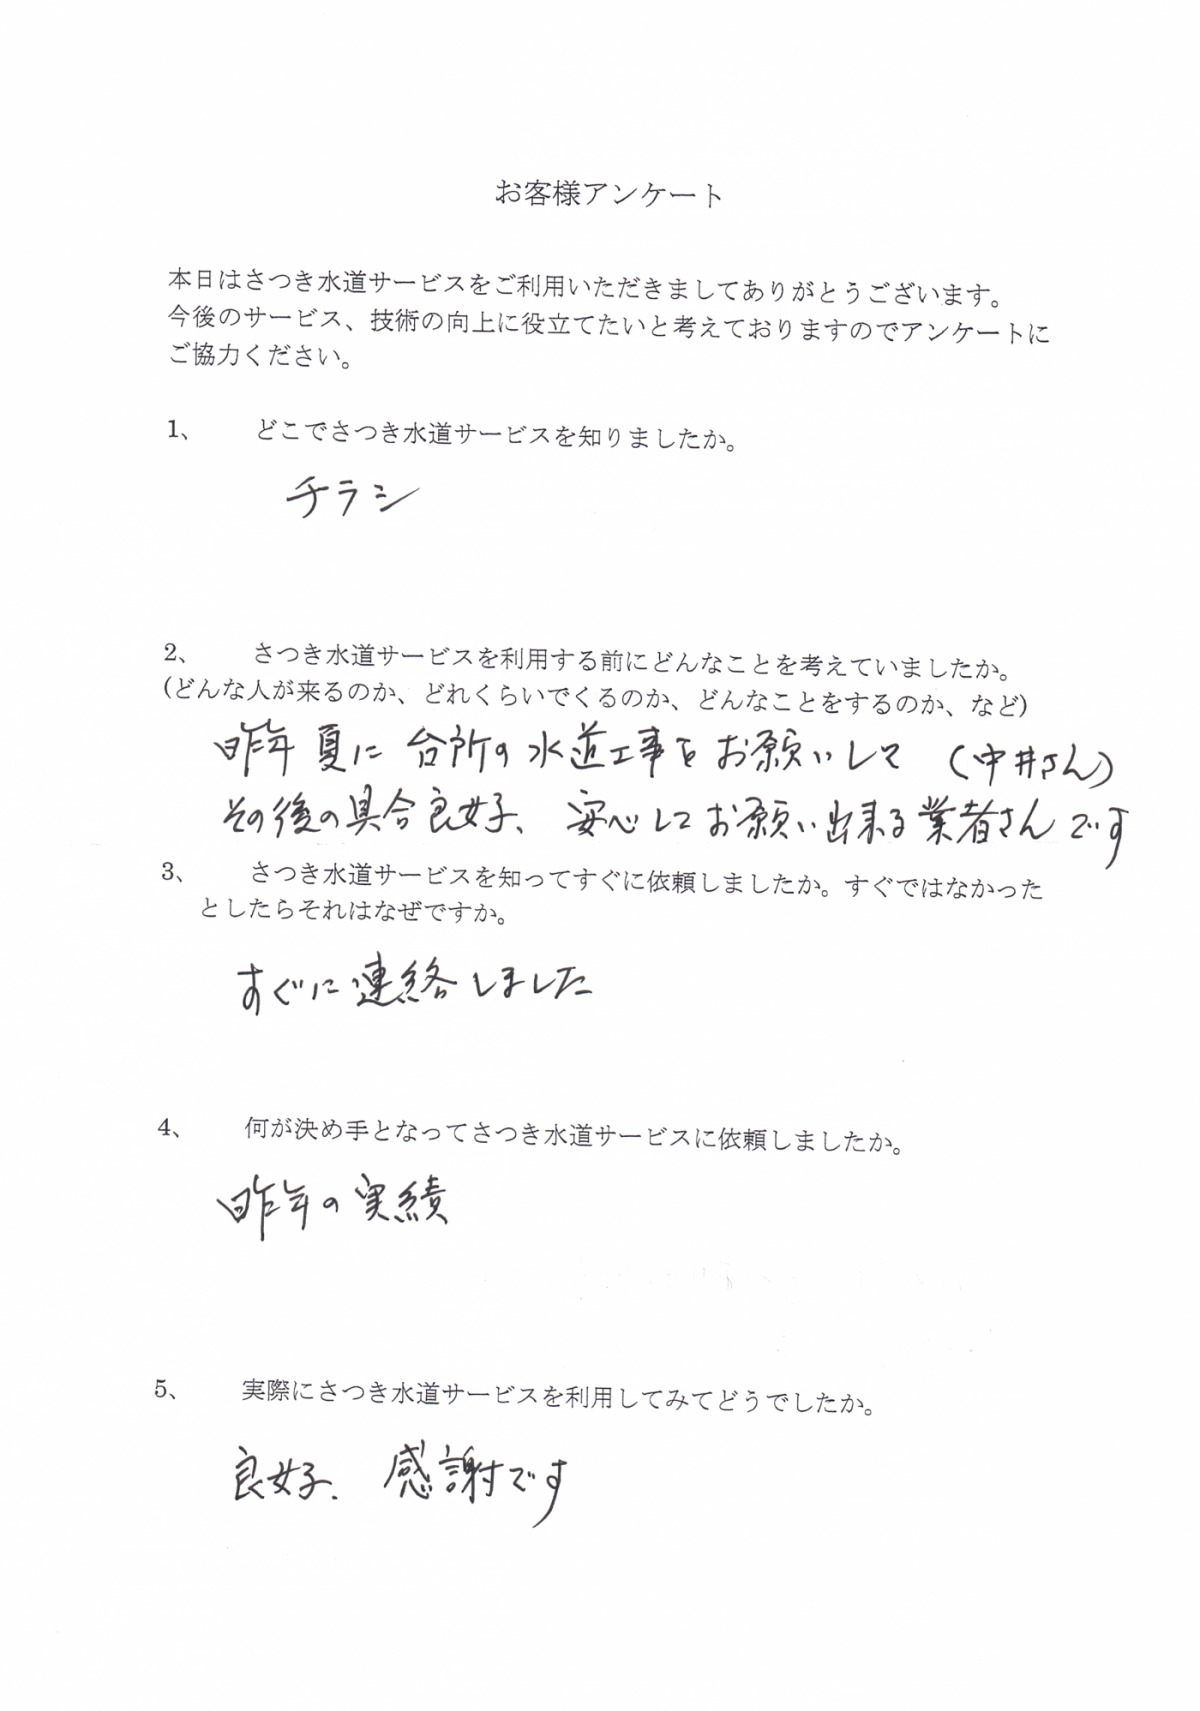 お客様アンケート
本日はさつき水道サービスをご利用いただきましてありがとうございます。
今後のサービス、技術の向上に役立てたいと考えておりますのでアンケートに
ご協力ください。
1、 どこでさつき水道サービスを知りましたか。
チラシ
2、 さつき水道サービスを利用する前にどんなことを考えていましたか。
(どんな人が来るのか、どれくらいでくるのか、どんなことをするのか、など)
昨年夏に台所の水道工事をお願いして (中井さん)
その後の具合良好、安心してお願い出来る業者さんです
3、 さつき水道サービスを知ってすぐに依頼しましたか。すぐではなかった
としたらそれはなぜですか。
すぐに連絡しました
4、 何が決め手となってさつき水道サービスに依頼しましたか。
昨年の実績
5、 実際にさつき水道サービスを利用してみてどうでしたか。
良好、感謝です